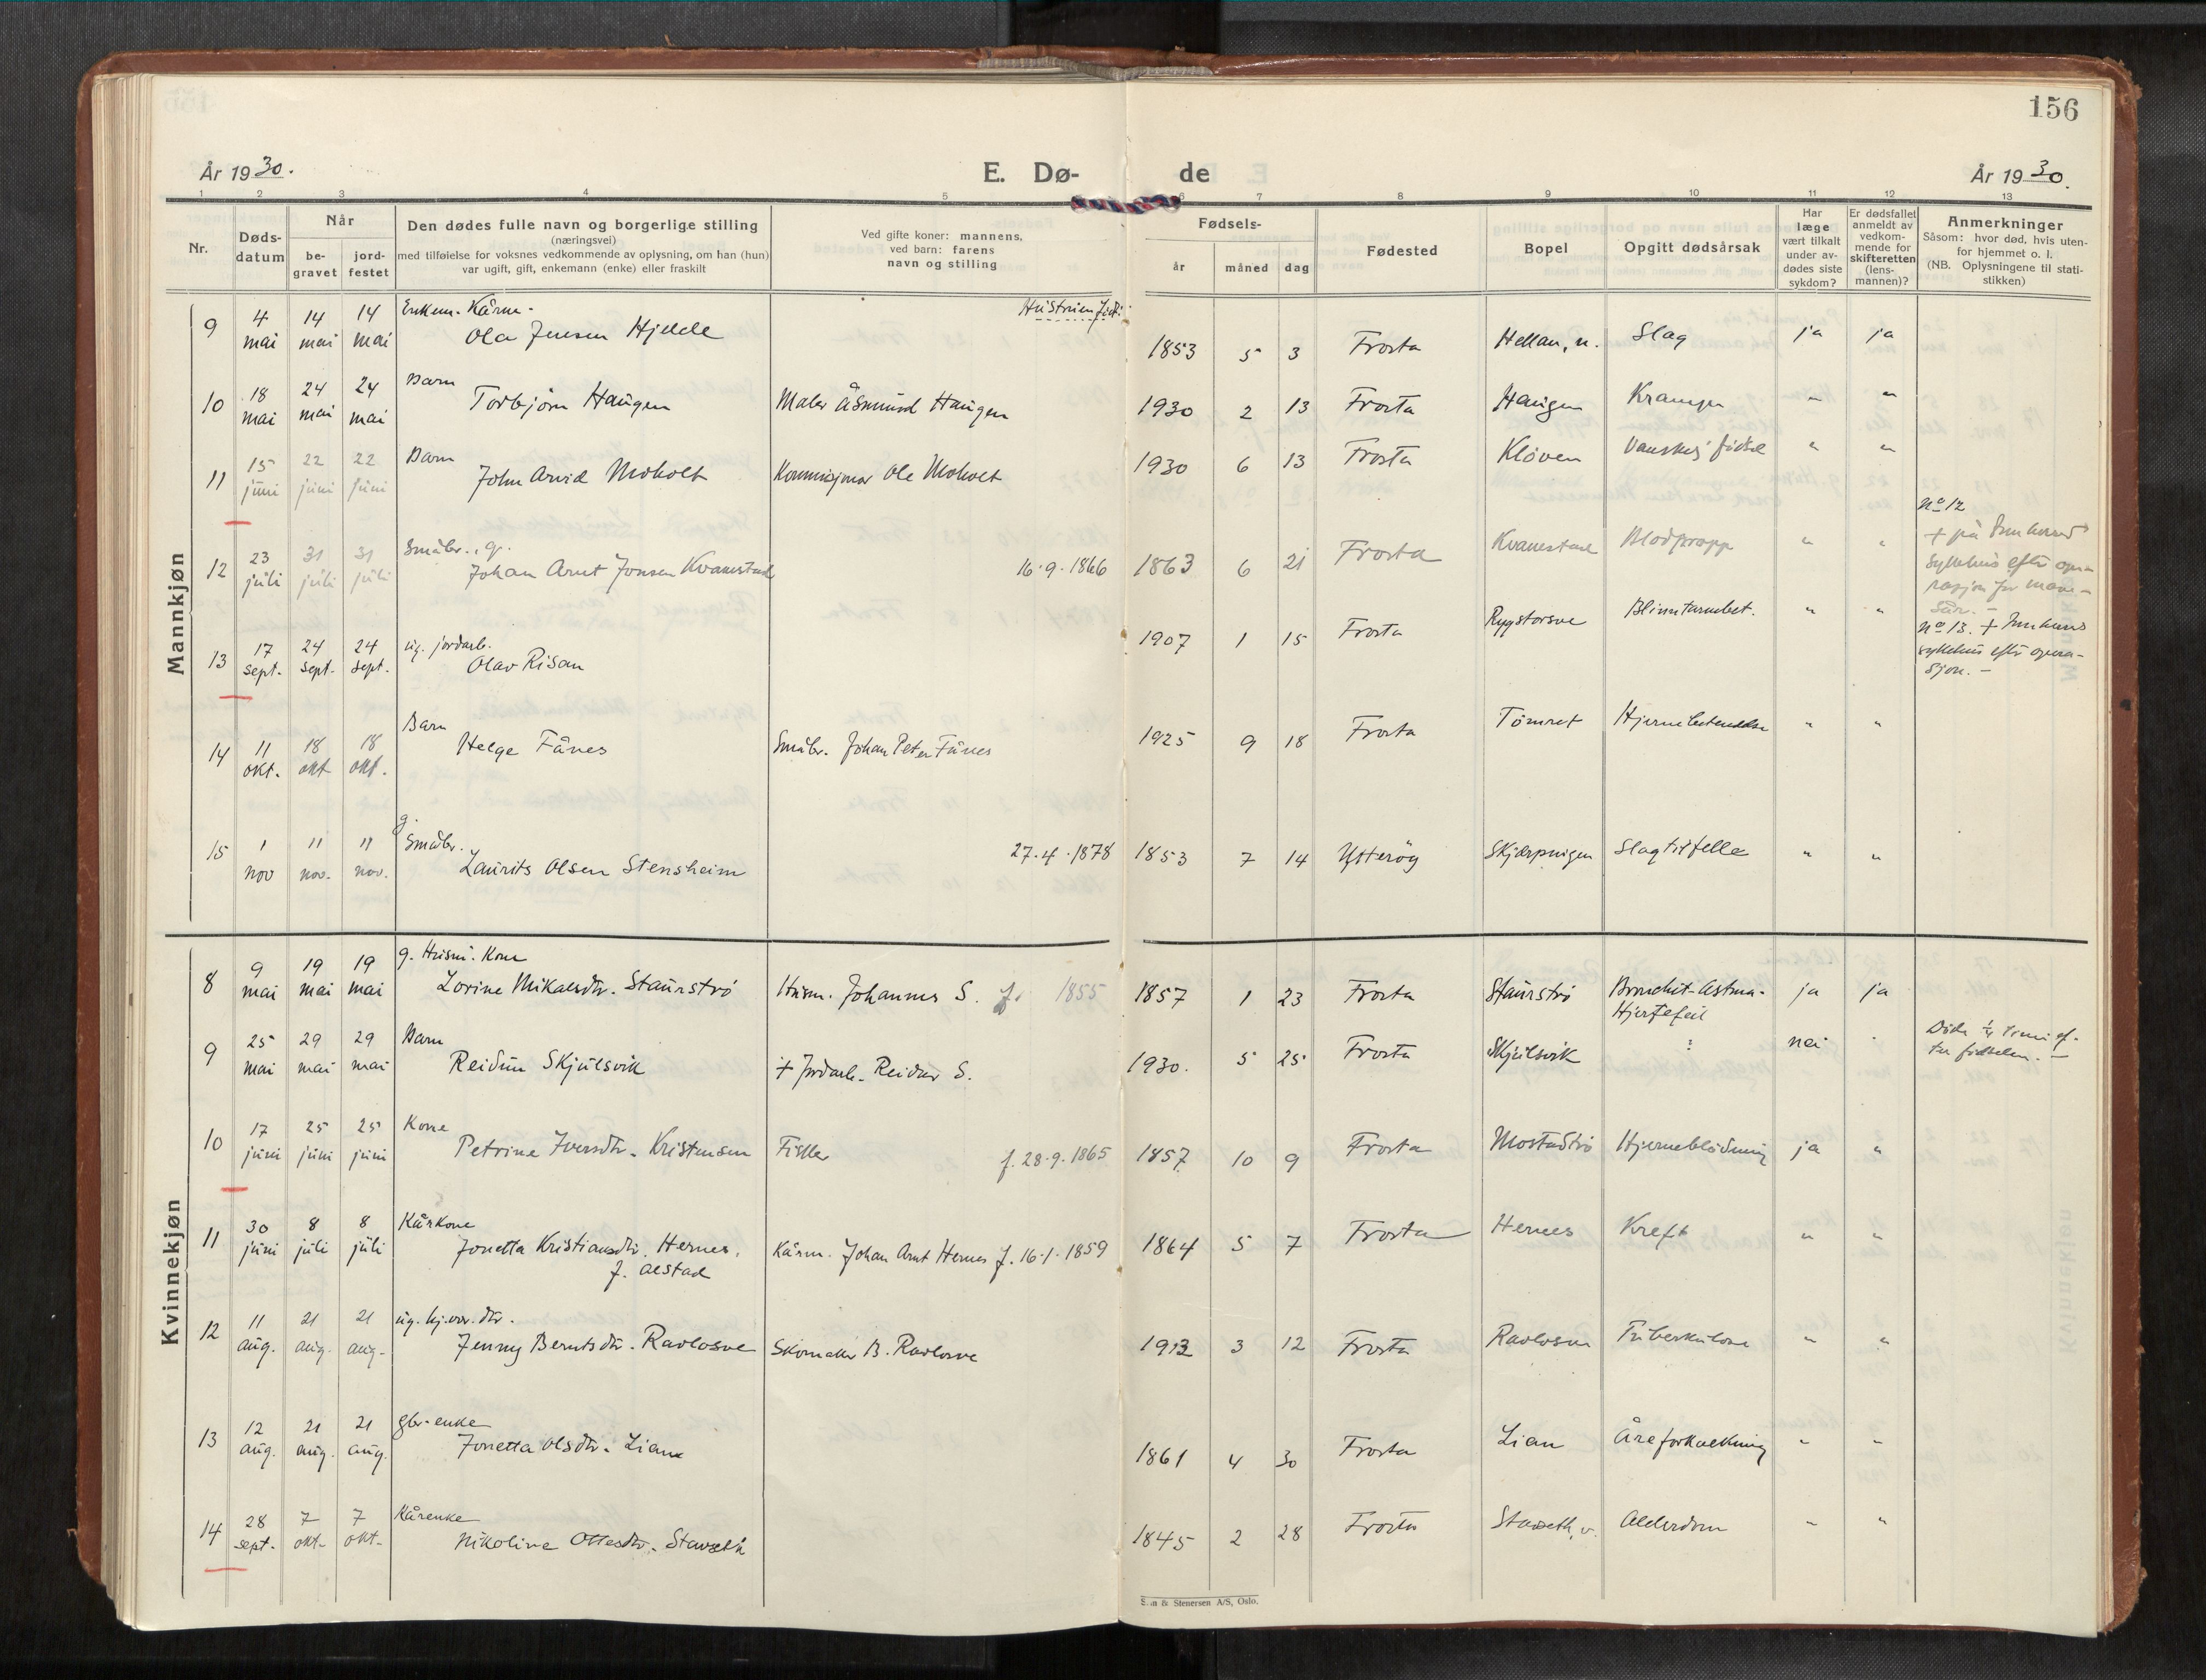 156
År 1930.
E. Dø-
de
År 1930.
1 2 3 4 5 6 7 8 9 10 11 12 13
Nr.
Døds-
datum
Når
be-
gravet
jord-
festet
Den dødes fulle navn og borgerlige stilling
(næringsvei)
med tilføielse for voksnes vedkommende av oplysning, om han (hun)
var ugift, gift, enkemann (enke) eller fraskilt
Ved gifte koner: mannens,
ved barn: farens
navn og stilling
Fødsels-
år måned dag
Fødested
Bopel
Opgitt dødsårsak
Har
læge
vært tilkalt
under av-
dødes siste
sykdom?
Er dødsfallet
anmeldt av
vedkom-
mende for
skifteretten
(lens-
mannen)?
Anmerkninger
Såsom: hvor død, hvis uten-
for hjemmet o. l.
(NB. Oplysningene til stati-
stikken)
Mannkjøn
Enkem. Kårm. Hustruen født:
9 4 mai 14 mai 14 mai Ola Jensen Hjelde 1853 5 3 Frosta Hellan, n. Slag ja ja
Barn
10 18 mai 24 mai 24 mai Torbjørn Haugen Maler Åsmund Haugen 1930 2 13 Frosta Haugen Krampe " "
Barn
11 15 juni 22 juni 22 juni John Arvid Moholt Kommisjonær Ole Moholt 1930 6 13 Frosta Kløven Vanskel. fødsel " "
Småbr., g.
12 23 juli 31 juli 31 juli Johan Arnt Jonsen Kvamstad 16.9.1866 1863 6 21 Frosta Kvamestad Blodpropp " "
No 12
+ på Innherred
sykehus efter ope-
rasjon for mave-
sår. -
ug. jordarb.
13 17 sept. 24 sept. 24 sept. Olav Risan 1907 1 15 Frosta Rygstorsve Blinntarmbet. " "
No 13. + Innherred
sykehus efter opera-
sjon. -
Barn
14 11 okt. 18 okt 18 okt. Helge Fånes Småbr. Johan Peter Fånes 1925 9 18 Frosta Tømret Hjernebetendelse " "
g.
Småbr.
15 1 nov 11 nov. 11 nov. Laurits Olsen Stensheim 27.4.1878 1853 7 14 Ytterøy Skjærpningen Slagtilfelle " "
Kvinnekjøn
g. Husm. Kone
8 9 mai 19 mai 19 mai Lorine Mikalsdtr. Staurstrø Husm. Johannes S. f. 1855 1857 1 23 Frosta Staurstrø Bronchit-Astma-
Hjertefeil ja ja
Barn
9 25 mai 29 mai 29 mai Reidun Skjulsvik + Jordarb. Reidar S. 1930. 5 25 Frosta Skjulsvik ? nei "
Døde ½ time ef-
ter fødselen. -
Kone
10 17 juni 25 juni 25 juni Petrine Iversdtr. Kristensen Fisker f. 28.9.1865 1857 10 9 Frosta Mostadtrø Hjerneblødning ja "
Kårkone
11 30 juni 8 juli 8 juli Jonetta Kristiansdtr. Hernes, Kårm. Johan Arnt Hernes f. 16.1.1859 1864 5 7 Frosta Hernes Kreft " "
f. Alstad
ug. hj.vær. dtr.
12 11 aug. 21 aug. 21 aug. Jenny Berntsdtr. Ravlosve Skomaker B. Ravlosve 1913 3 12 Frosta Ravlosve Tuberkulose " "
gbr-enke
13 12 aug. 21 aug. 21 aug. Jonetta Olsdtr. Lian 1861 4 30 Frosta Lian Åreforkalkning " "
Kårenke
14 28 sept. 7 okt. 7 okt. Nikoline Ottesdtr. Stavseth 1845 2 28 Frosta Stavseth, v. Alderdom " "
& Stenersen A/S, Oslo.